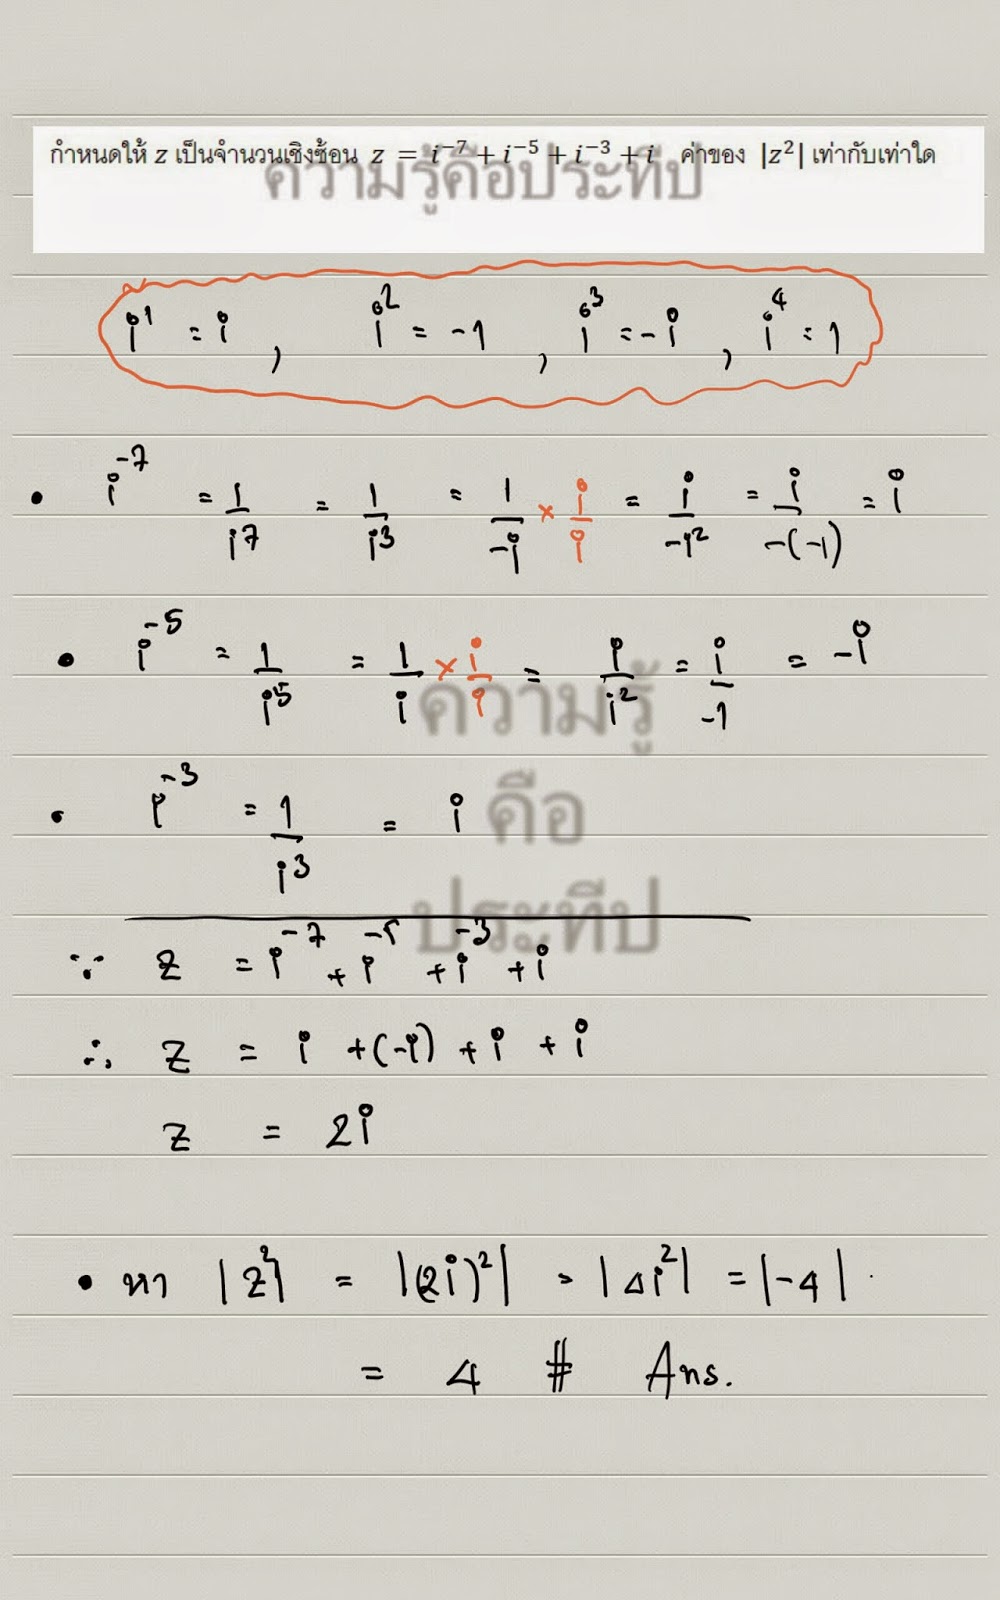 กำหนดให้ z เป็นจำนวนเชิงซ้อน z = i⁻⁷ + i⁻⁵ + i⁻³ + i ค่าของ |z²| เท่ากับเท่าใด
ความรู้คือประทีป
i¹ = i , i² = -1 , i³ = -i , i⁴ = 1
• i⁻⁷ = 1/i⁷ = 1/i³ = 1/-i × i/i = i/-i² = i/-(-1) = i
• i⁻⁵ = 1/i⁵ = 1/i × i/i = i/i² = i/-1 = -i
ความรู้
• i⁻³ = 1/i³ = i
คือ
ประทีป
∵ z = i⁻⁷ + i⁻⁵ + i⁻³ + i
∴ z = i + (-i) + i + i
z = 2i
• หา |z²| = |(2i)²| = |4i²| = |-4|
= 4 # Ans.